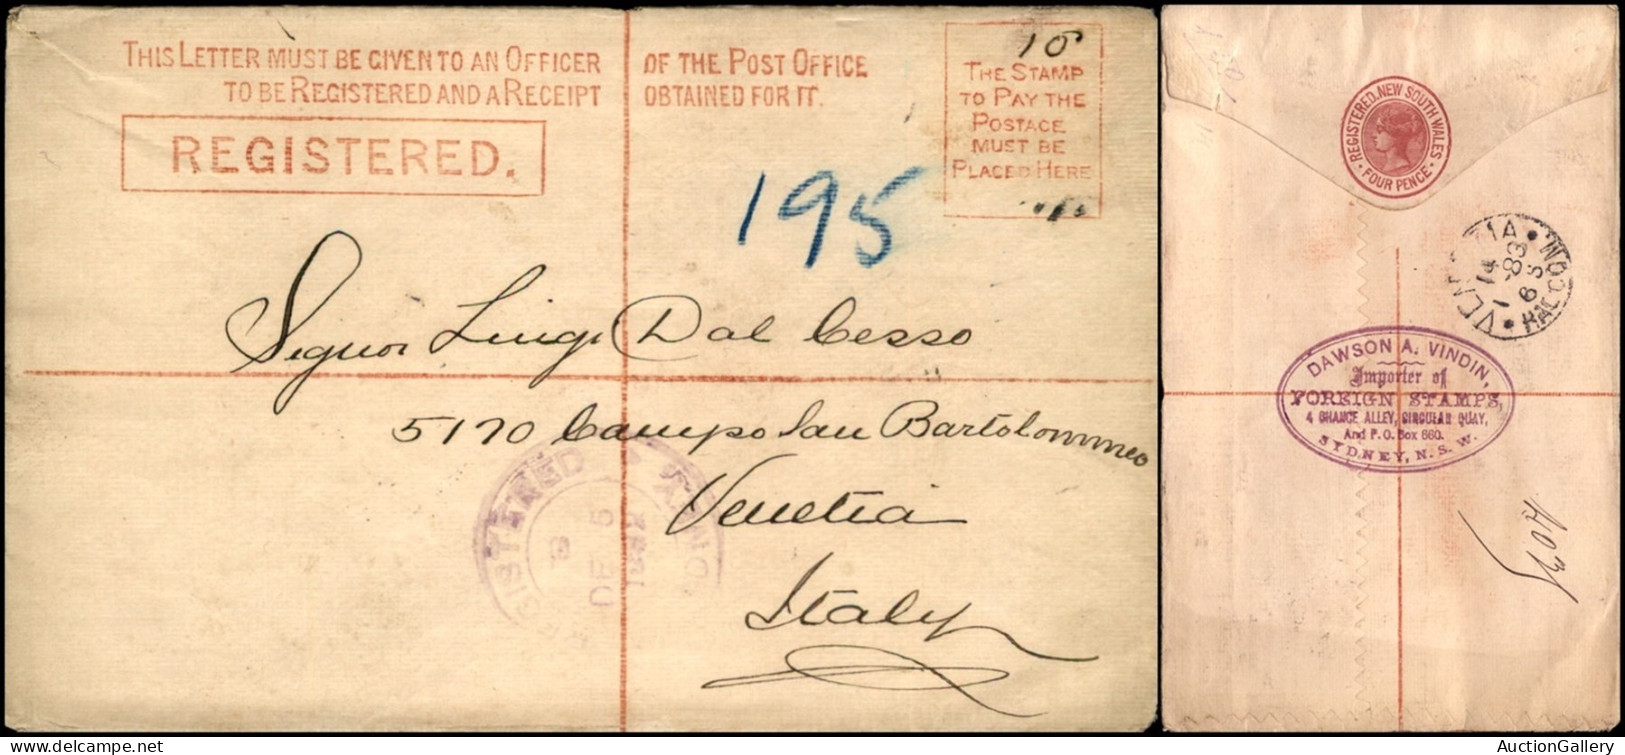 THIS LETTER MUST BE GIVEN TO AN OFFICER OF THE POST OFFICE
TO BE REGISTERED AND A RECEIPT OBTAINED FOR IT.
REGISTERED.
10
THE STAMP
TO PAY THE
POSTAGE
MUST BE
PLACED HERE
195
Signor Luigi Dal Cesso
5170 Campo San Bartolommeo
Venetia
Italy
REGISTERED
DE 5
REGISTERED. NEW SOUTH WALES
FOUR PENCE
14
6 S
RACCOM
DAWSON A. VINDIN,
Importer of
FOREIGN STAMPS,
4 CHANGE ALLEY, CIRCULAR QUAY,
And P.O. Box 660.
SYDNEY, N. S. W.
AuctionGallery